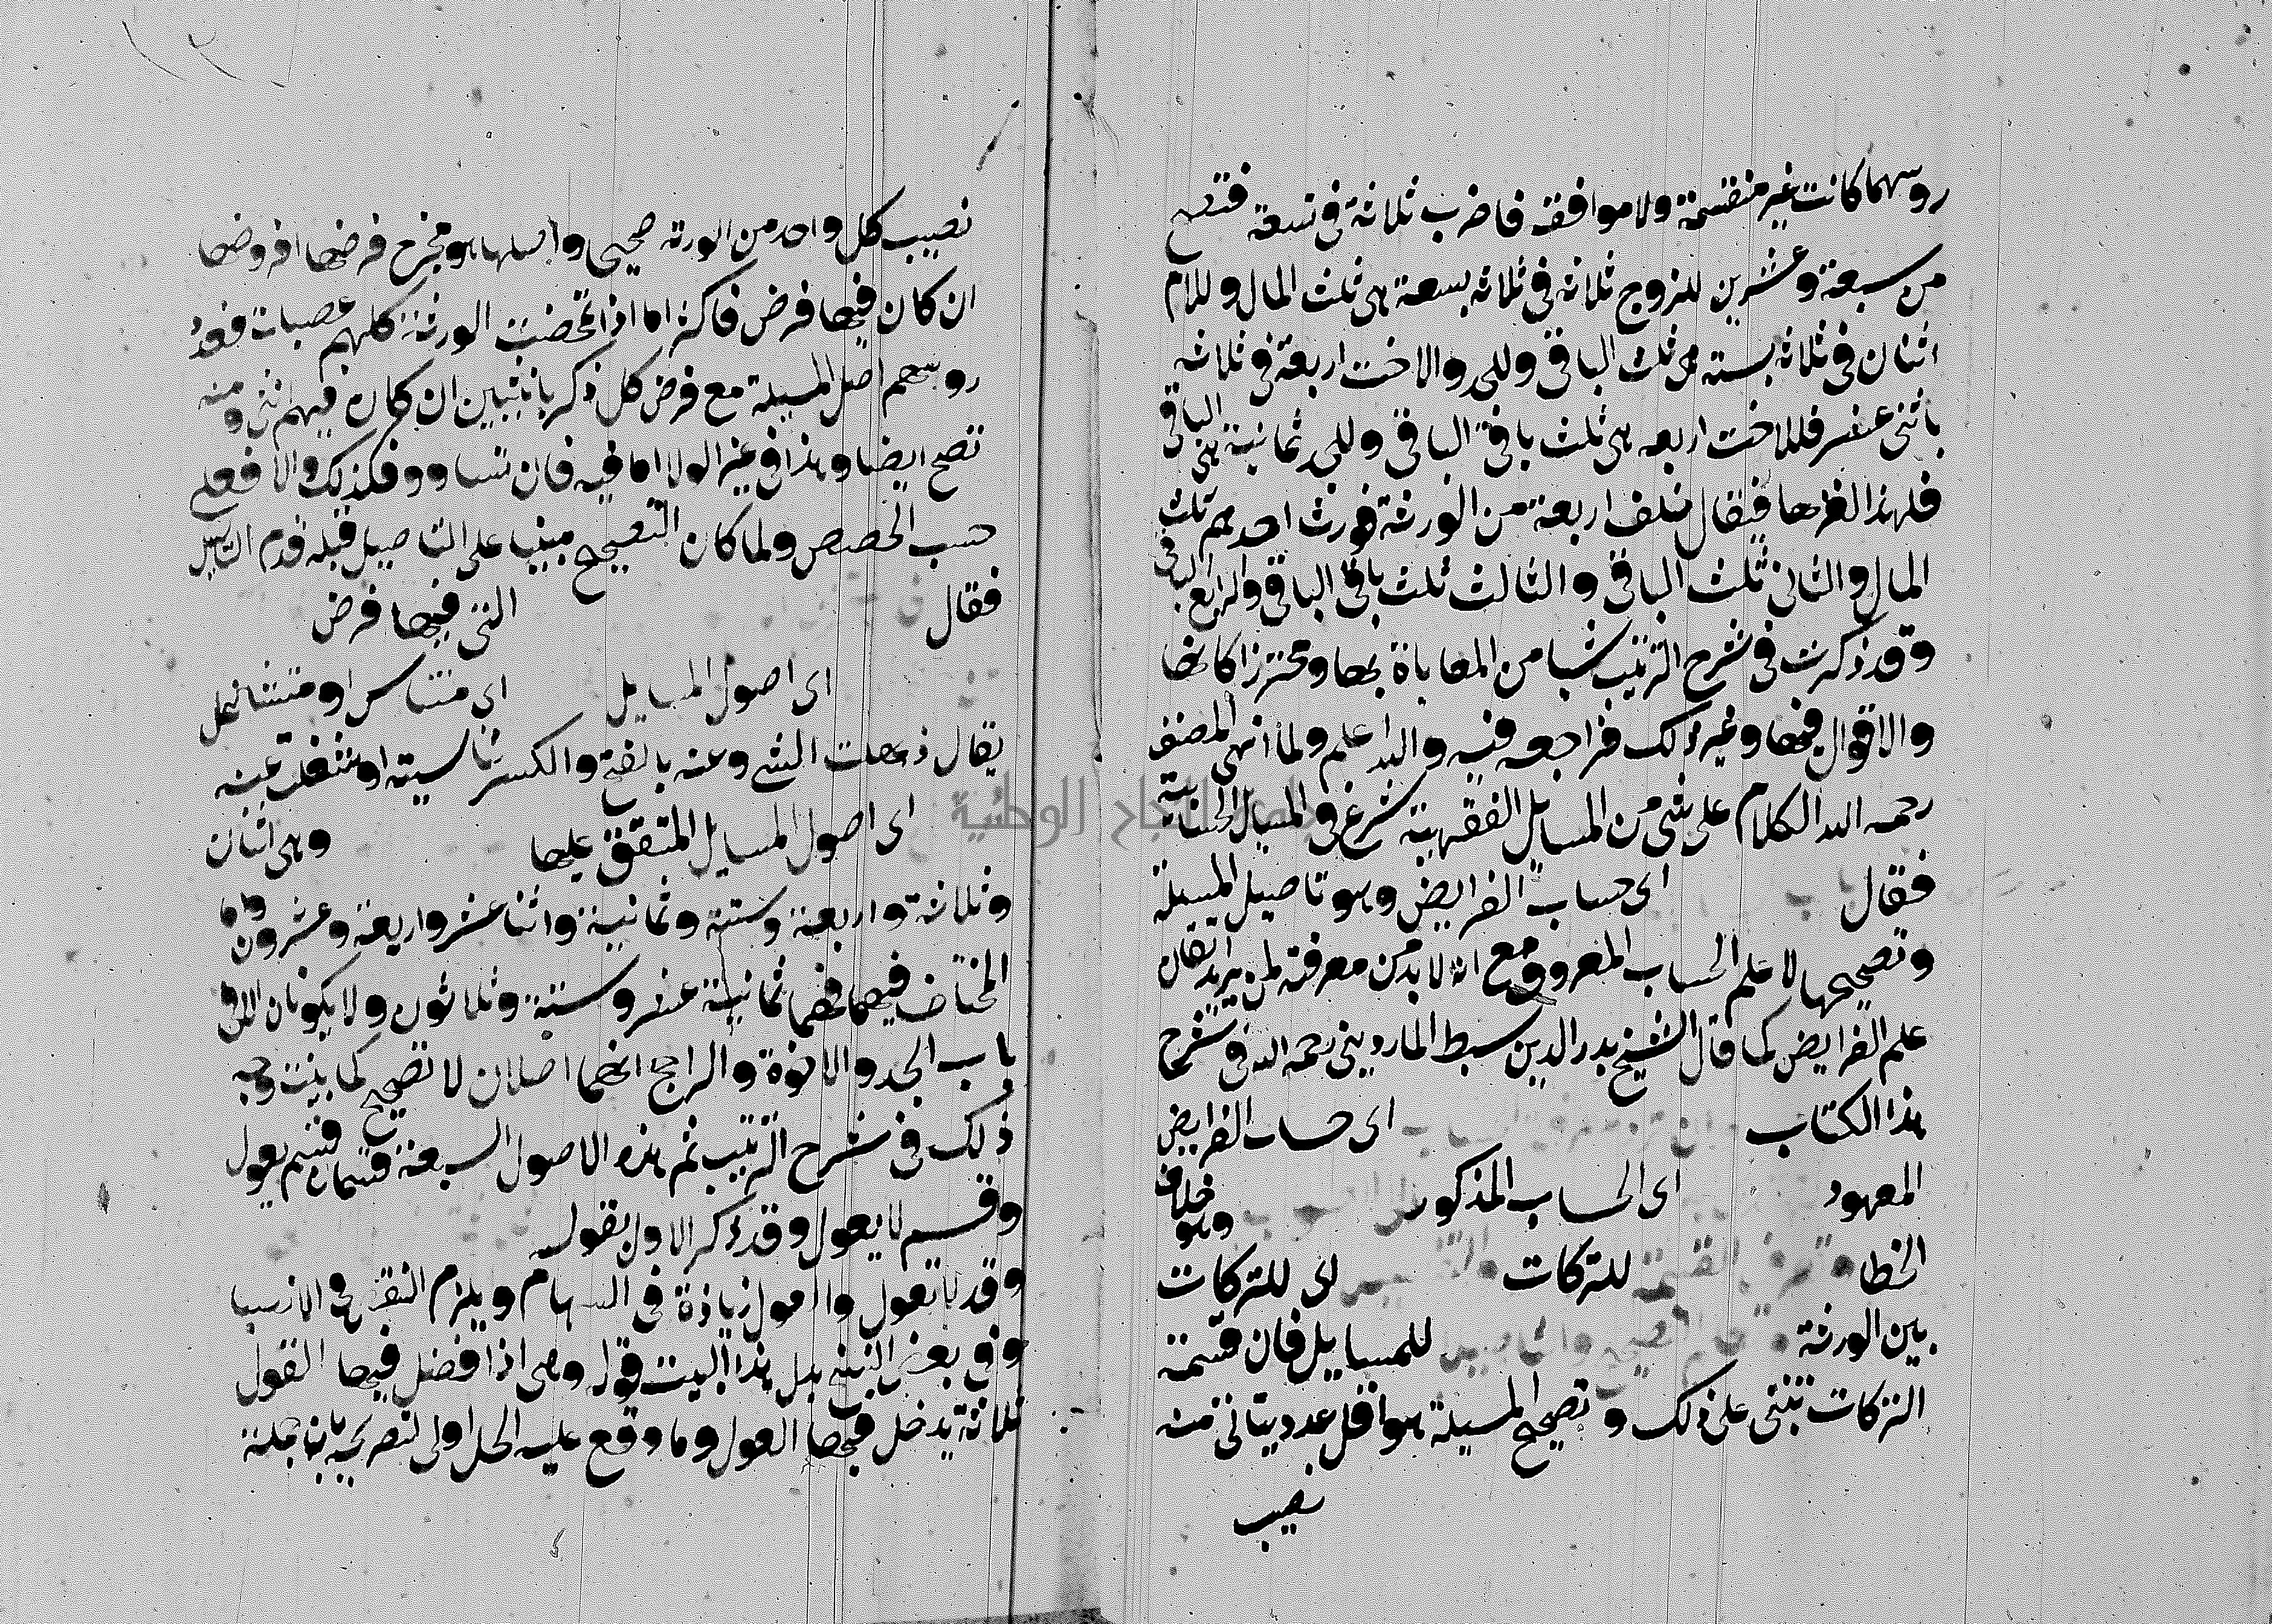 روسهما كانت غير منقسمة ولا موافقه فاضرب ثلاثة في تسعة فتصح
من سبعة وعشرين للزوج ثلاثه في ثلاثه بسعة هي ثلث المال وللام
اثنان في ثلاثه بسته هي ثلث الباقي وللجد والاخت اربعة في ثلاثه
باثني عشر فللاخت اربعه هي ثلث باقي الباقي وللجد ثمانية هي الباقي
فلهذا الغزها فيقال خلف اربعة من الورثة فورث احدهم ثلث
المال والثاني ثلث الباقي والثالث ثلث باقي الباقي والرابع الباقي
وقد ذكرت في شرح الترتيب شيا من المعاياة بها ومحترز اكانها
والاقوال فيها وغير ذلك فراجعه فيه والله اعلم ولما انهى المصنف
رحمه الله الكلام على شي من المسايل الفقهية شرع في المسايل الحسابية
فقال اى حساب الفرايض وهو تاصيل المسيلة
وتصحيحها لا علم الحساب المعروف مع انه لا بد من معرفته لمن يريد اتقان
علم الفرايض كما قال الشيخ بدر الدين سبط المارديني رحمه الله في شرح
هذا الكتاب اى حساب الفرايض
المعهود اى الحساب المذكور وهو خلاف
الخطا للتركات اى للتركات
بين الورثة للمسايل فان قسمة
التركات تبتنى على ذلك وتصحيح المسيلة هو اقل عدد يتاتى منه
نصيب
نصيب كل واحد من الورثه صحيحا واصلها هو مخرج فرضها او فروضها
ان كان فيها فرض فاكثر اما اذا تمحضت الورثة كلهم عصبات فعدد
روسهم اصل المسيلة مع فرض كل ذكر بانثيين ان كان فيهم انثى ومنه
تصح ايضا وهذا في غير الولا اما فيه فان تساووا فكذلك والا فعلى
حسب الحصص ولما كان التصحيح مبنيا على التاصيل قبله قدم التاصيل
فقال التي فيها فرض
اى اصول المسايل اى متناس او متشاغل
يقال ذهلت الشي وعنه بالفتح والكسر تناسيته او شغلت عنه
اى اصول المسايل المتفق عليها وهي اثنان
وثلاثة واربعة وستة وثمانية واثنا عشر واربعة وعشرون واما
المختلف فيهما فهما ثمانية عشر وستة وثلاثون ولا يكونان الا في
باب الجد والاخوة والراجح انهما اصلان لا تصحيح كما بينت وجه
ذلك في شرح الترتيب ثم هذه الاصول السبعة قسمان قسم يعول
وقسم لا يعول وقد ذكر الاول بقوله
وقد لا تعول والعول زيادة في السهام ويلزم النقص في الانصبا
وفي بعض النسخ بدل هذا البيت قوله وهي اذا فصل فيها القول
ثلاثة يدخل فيها العول وما وقع عليه الحل اولى لتصريحه بان جملة